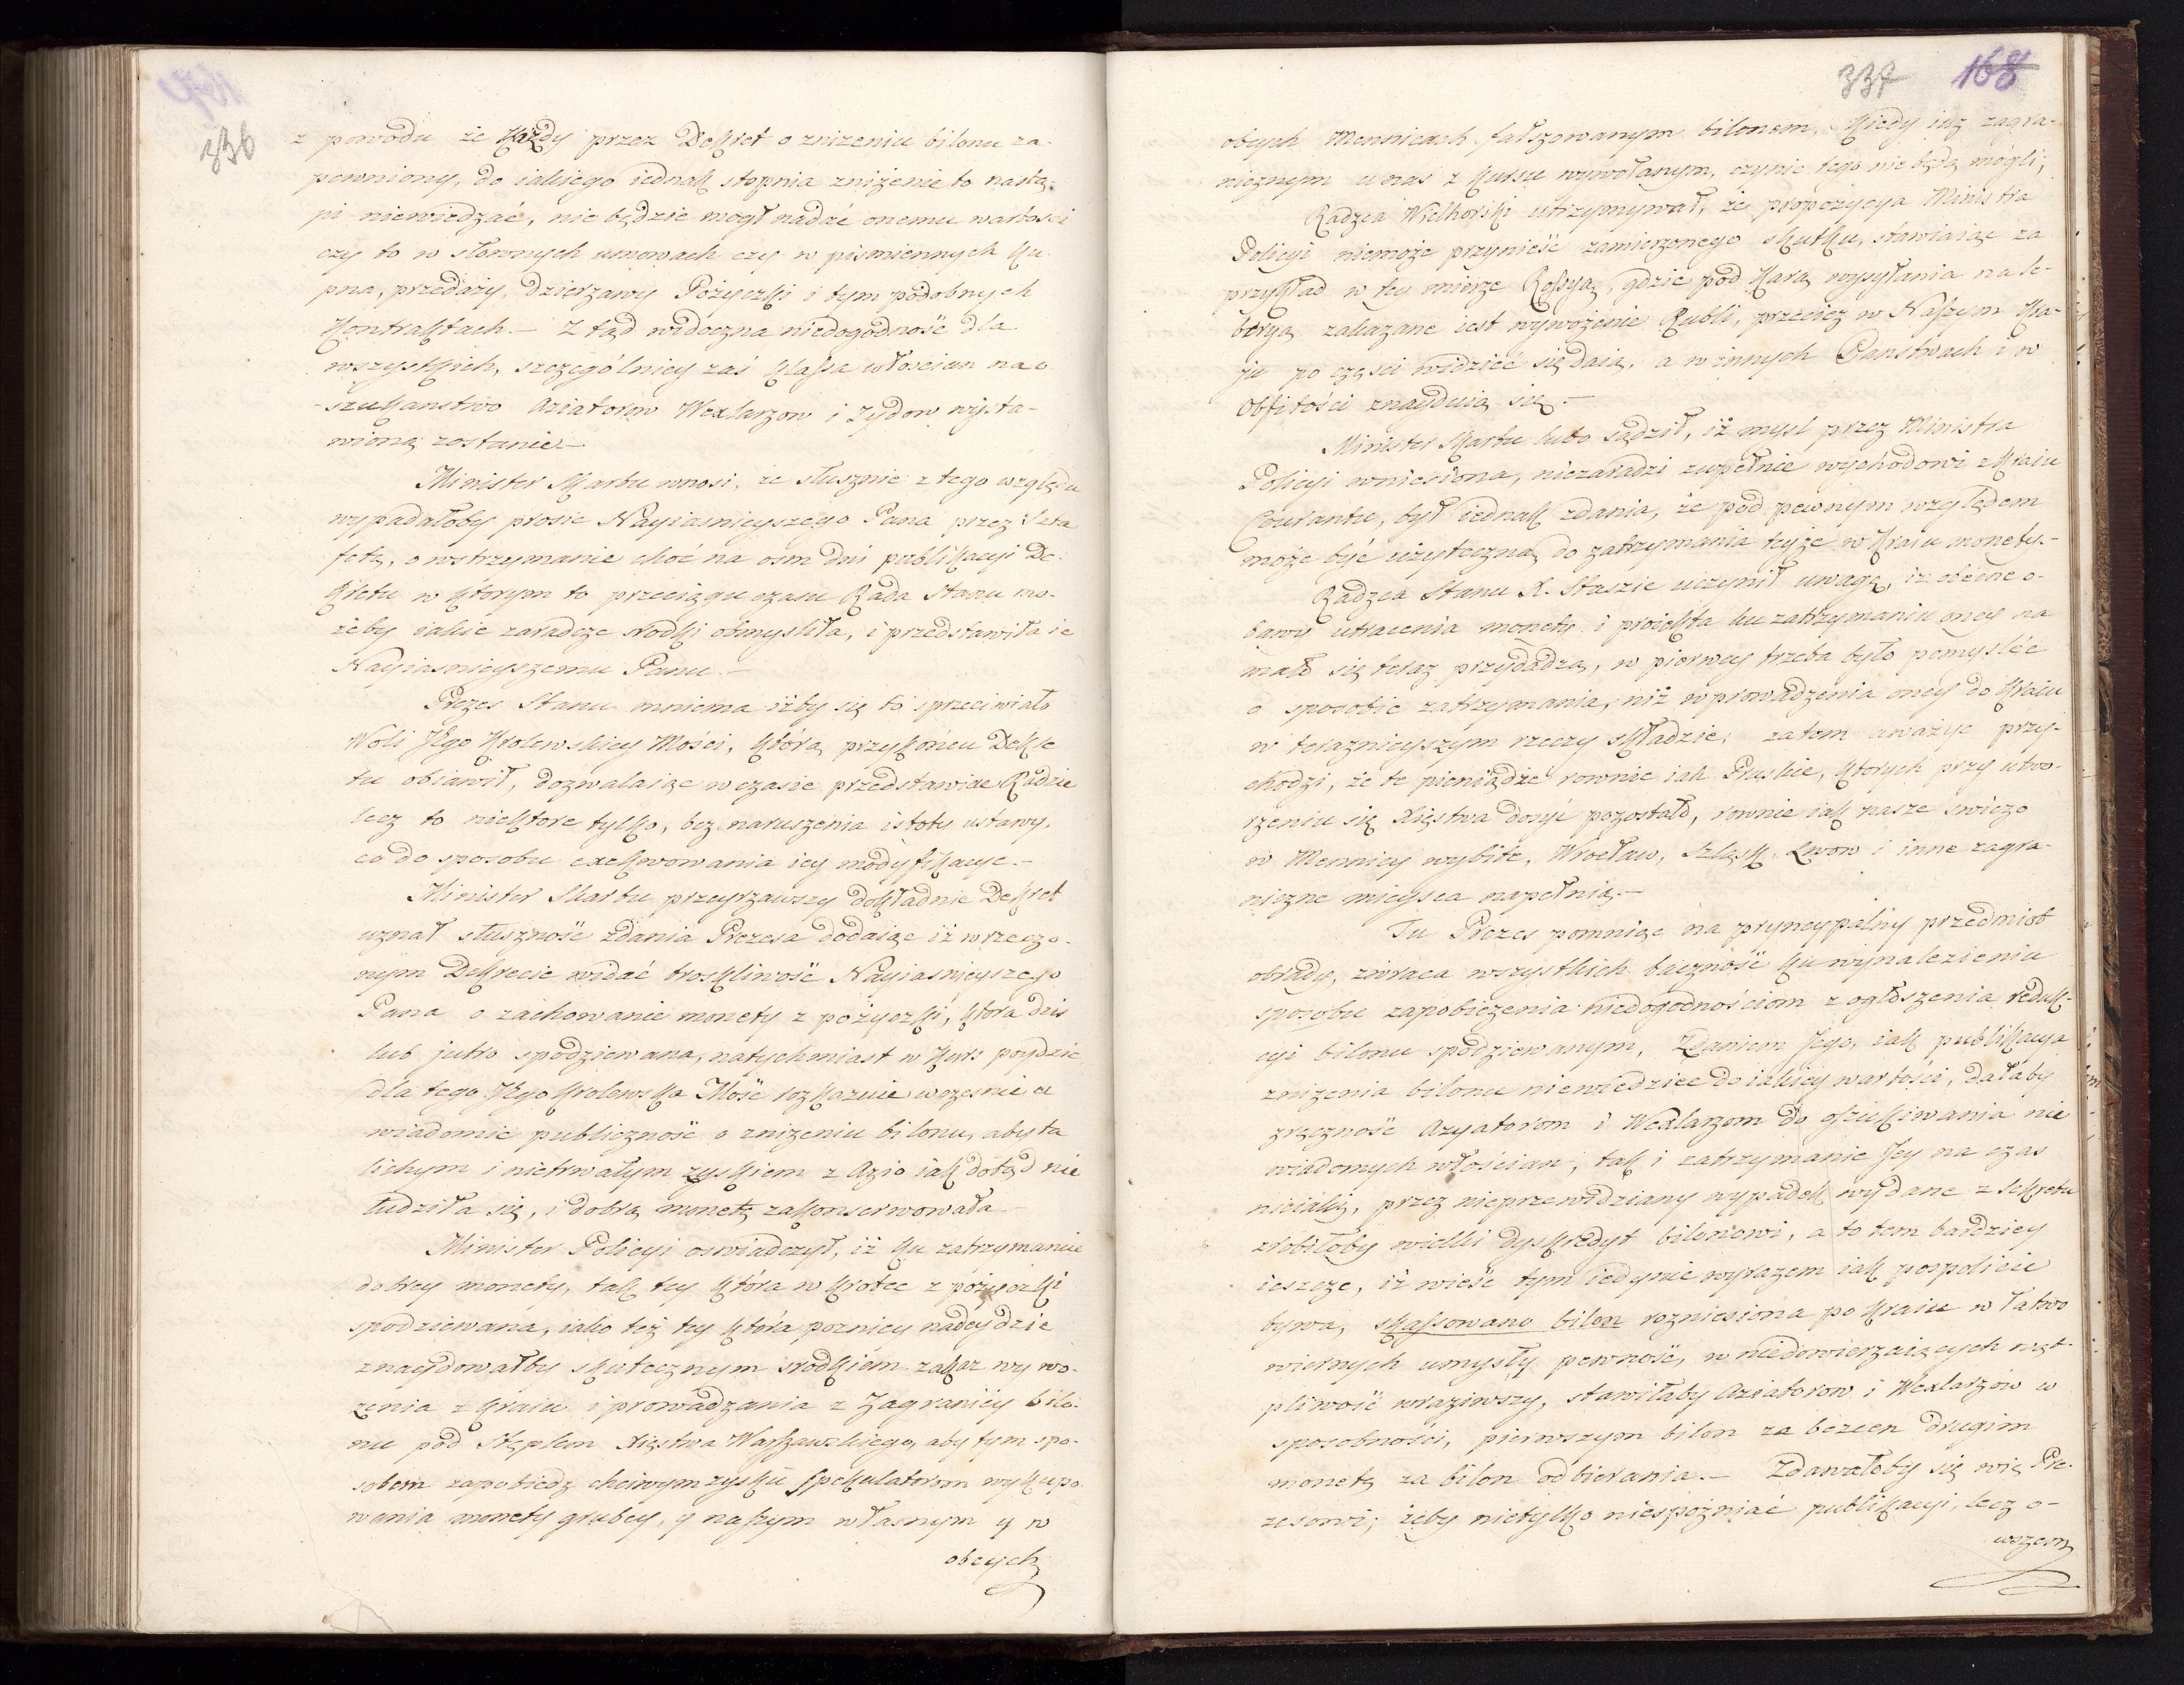 336
z powodu że Każdy przez Dekret o zniżeniu bilonu za-
pewniony, do iakiego iednak stopnia zniżenie to nastą-
pi niewiedząć, nie będzie mogł nadać onemu wartości
czy to w słownych umowach czy w pismiennych Ku-
pna, przedaży, Dzierzawy Pożyczki i tym podobnych
Kontraktach.— Z tąd widoczna niedogodność dla
wszystkich, szczególniey zaś Klassa włoscian na o-
szukanstwo Aziatorow Wexlarzow i Zydow wysta-
wioną zostanie.—
Minister Skarbu wnosi, ze słusznie z tego względu
wypadałoby prosic Nayiasnieyszego Pana przez Szta-
fetę, o wstrzymanie choć na osm dni publikacyi De-
kretu w którym to przeciągu czasu Rada Stanu mo-
żeby iakie zaradcze srodki obmysliła, i przedstawiła ie
Nayiasnieyszemu Panu.—
Prezes Stanu mniema iżby się to sprzeciwiało
Woli JEgo Krolewskiey Mości, którą przy końcu Dekre-
tu obiawił, dozwalaiąc w czasie przedstawiać Radzie
lecz to niektore tylko, bez naruszenia istoty ustawy,
co do sposobu exekwowania iey modyfikacye.—
Minister Skarbu przeyrzawszy dokładnie Dekret
uznał słuszność zdania Prezesa dodaiąc iż w rzeczo-
nym Dekrecie widać troskliwość Nayiasnieyszego
Pana o zachowanie monety z pożyczki, ktora dzis
lub jutro spodziewana, natychmiast w kurs poydzie
dla tego JEgo Krolewska Mość rozkazuie wczesnie u
wiadomic publiczność o zniżeniu bilonu, aby ta
lichym i nietrwałym zyskiem z Azio iak dotąd nie
łudziła się, i dobrą monetę zakonserwowała.—
Minister Policyi oswiadczył, iż ku zatrzymaniu
dobrey monety, tak tey która w krotce z pożyczki
spodziewana, iako też tey która pozniey nadeydzie
znaydowałby skutecznym srodkiem zakaz wywo-
zenia z Kraiu i prowadzania z Zagranicy bilo-
nu pod Stęplem Xięstwa Warszawskiego, aby tym spo-
sobem zapobiedz chciwym zysku spekulatorom wykupo-
wania monety grubey, y naszym własnym y w
obcych
337 168
obcych Mennicach fałszowanym bilonem, kiedy iuż zagra-
nicznym u nas z kursu wywołanym, czynic tego nie będą mogli;
Radzca Wielhorski utrzymywał, że propozycya Ministra
Policyi niemoże przynieść zamierzonego skutku, stawiaiąc za
przykład w tey mierze Rossyą, gdzie pod Karą wysyłania na Se-
beryą zakazane iest wywożenie Rubli, przecież w Naszym Kra-
ju po częsci widzieć się daią, a w innych Panstwach i w
Obfitości znayduią się.—
Minister Skarbu lubo sądził, iż mysl przez Ministra
Policyi wniesiona, niezaradzi zupełnie wychodowi z Kraiu
Courantu, był iednak zdania, że pod pewnym względem
może być użyteczną do zatrzymania teyże w Kraiu monety.—
Radzca Stanu X. Staszic uczynił uwagę, iż obecne o-
bawy utracenia monety i proiekta ku zatrzymaniu oney na
mało się teraz przydadzą, w pierwey trzeba było pomysléć
o sposobie zatrzymania, niż wprowadzenia oney do Kraiu
w terazniejszym rzeczy składzie; zatem uważyc przy-
chodzi, że te pieniądze rownie iak Pruskie, których przy utwo-
rzeniu się Xięstwa dosyć pozostało, rownie iak nasze swiezo
w Mennicy wybite, Wrocław, Szląsk, Lwow i inne zagra-
niczne mieysca napełnią.—
Tu Prezes pomniąc na pryncypalny przedmiot
obrady, zwraca wszystkich baczność ku wynalezieniu
sposobu zapobieżenia niedogodnościom z ogłoszenia reduk-
cyi bilonu spodziewanym, Zdaniem Jego, iak publikacya
zniżenia bilonu niewiedziec do iakiey wartości, dałaby
zręczność Azyatorom i Wexlarzom do oszukiwania nie
wiadomych włościan, tak i zatrzymanie Jey na czas
nieiaki, przez nieprzewidziany wypadek wydane z sekretu
zrobiłoby wielki dyskredyt bilonowi, a to tem bardziey
ieszcze, iż wieść tym iedynie wyrazem iak pospolicie
bywa, skassowano bilon rozniesiona po Kraiu w łatwo
wiernych umysły pewność, w niedowierzaiących wąt-
pliwość wraziwszy, stawiłaby Aziatorow i Wexlarzow w
sposobności, pierwszym bilon za bezcen drugim
monetę za bilon odbierania.— Zdawałoby się więc Pre-
zesowi; żeby nietylko niespożniać publikacyi, lecz o-
wszem